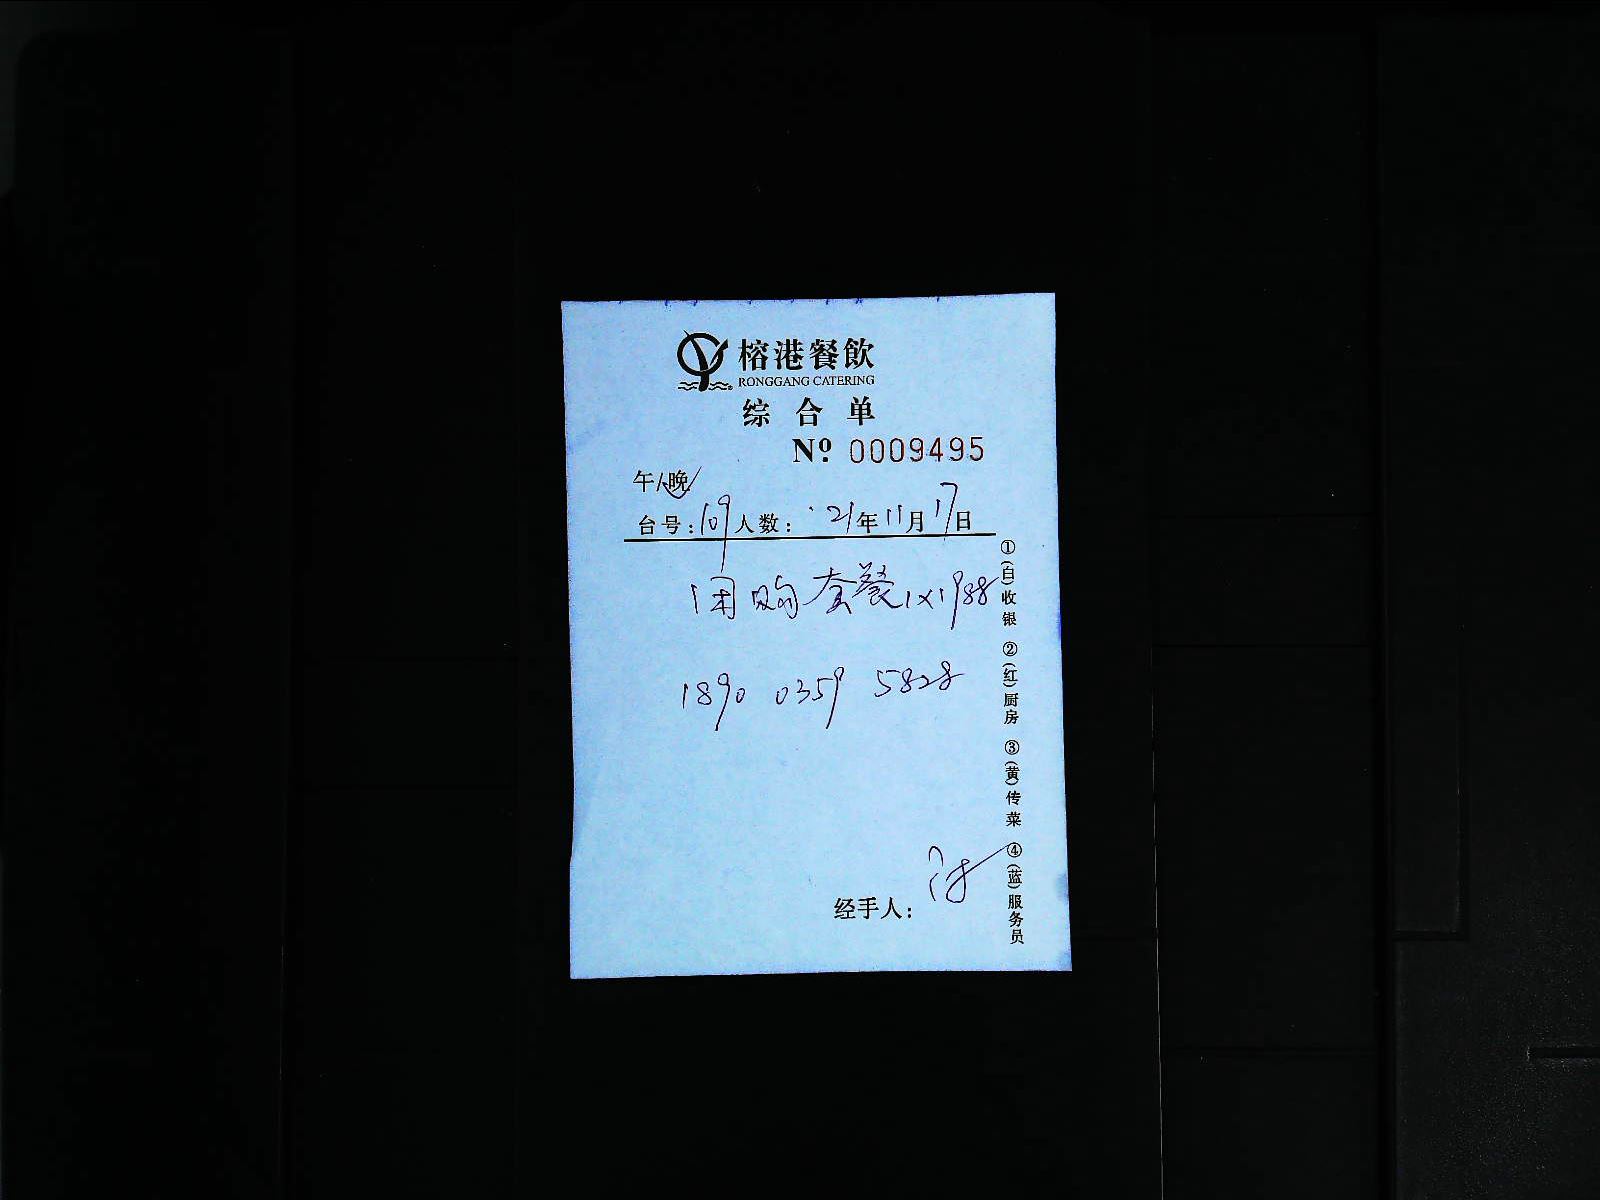 榕港餐飲
RONGGANG CATERING
综合单
№ 0009495
午/晚
台号:109人数: 21年11月17日
团购套餐1×1988
1890 0359 5828
经手人:
①(白)收银 ②(红)厨房 ③(黄)传菜 ④(蓝)服务员